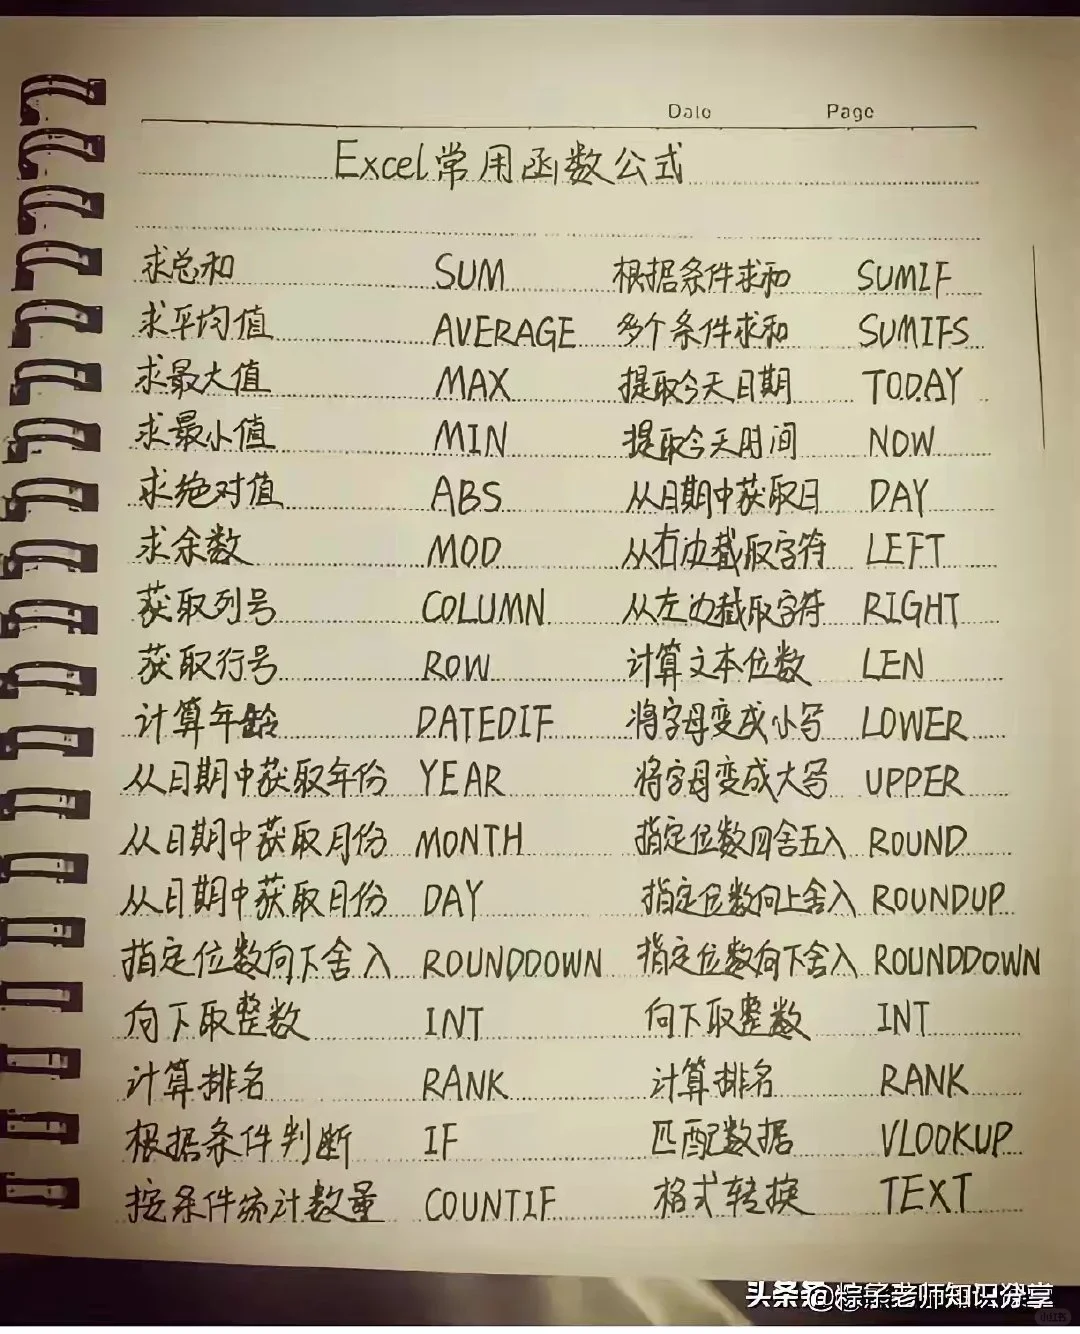 Date Page
Excel常用函数公式
求总和 SUM 根据条件求和 SUMIF
求平均值 AVERAGE 多个条件求和 SUMIFS
求最大值 MAX 提取今天日期 TODAY
求最小值 MIN 提取今天时间 NOW
求绝对值 ABS 从日期中获取日 DAY
求余数 MOD 从右边截取字符 LEFT
获取列号 COLUMN 从左边截取字符 RIGHT
获取行号 ROW 计算文本位数 LEN
计算年龄 DATEDIF 将字母变成小写 LOWER
从日期中获取年份 YEAR 将字母变成大写 UPPER
从日期中获取月份 MONTH 指定位数四舍五入 ROUND
从日期中获取日份 DAY 指定位数向上舍入 ROUNDUP
指定位数向下舍入 ROUNDDOWN 指定位数向下舍入 ROUNDDOWN
向下取整数 INT 向下取整数 INT
计算排名 RANK 计算排名 RANK
根据条件判断 IF 匹配数据 VLOOKUP
按条件统计数量 COUNTIF 格式转换 TEXT
头条 @粽子老师知识分享